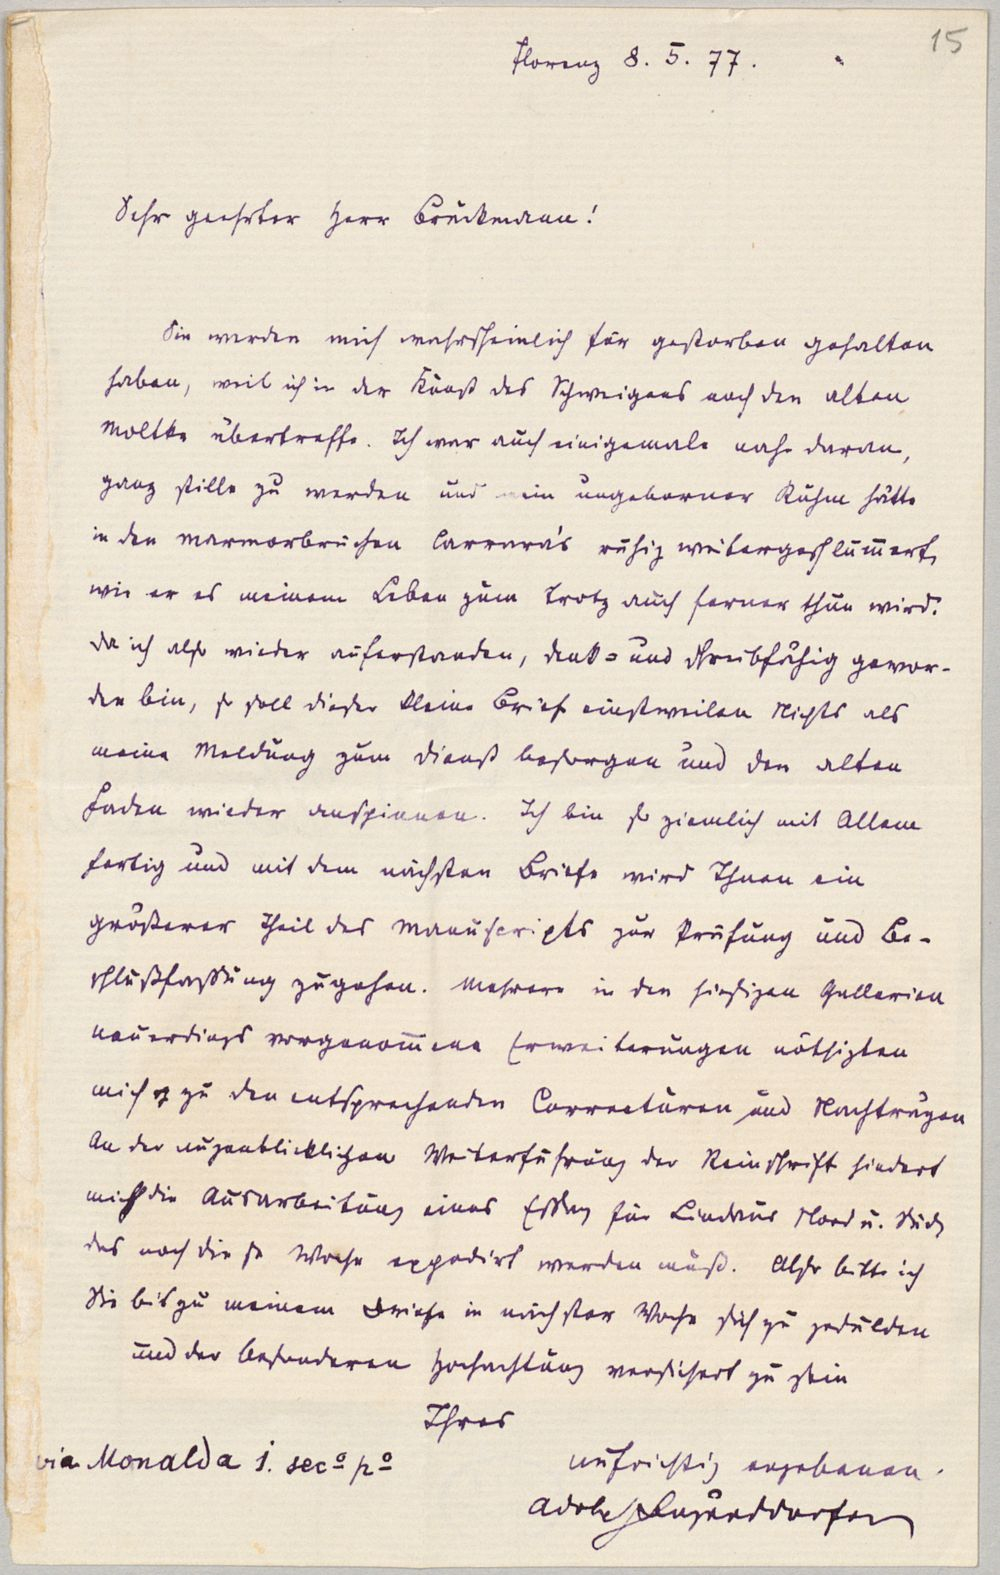 15
Florenz 8. 5. 77.
Sehr geehrter Herr Bruckmann!
Sie werden mich wahrscheinlich für gestorben gehalten
haben, weil ich in der Kunst des Schweigens noch den alten
Moltke übertreffe. Ich war auch einigemale nahe daran,
ganz stille zu werden und mein ungeborner Ruhm hätte
in den Marmorbrüchen Carrara's ruhig weitergeschlummert,
wie er es meinem Leben zum Trotz auch ferner thun wird.
Da ich also wieder auferstanden, denk= und schreibfähig gewor-
den bin, so soll dieser kleine Brief einstweilen Nichts als
meine Meldung zum Dienst besorgen und den alten
Faden wieder anspinnen. Ich bin so ziemlich mit Allem
fertig und mit dem nächsten Briefe wird Ihnen ein
größerer Theil des Manuscripts zur Prüfung und Be-
schlußfassung zugehen. Mehrere in den hiesigen Gallerien
neuerdings vorgenommene Erweiterungen nöthigten
mich zu den entsprechenden Correcturen und Nachträgen
An der augenblicklichen Weiterführung der Reinschrift hindert
mich die Ausarbeitung eines Essay für Lindaus Nord u. Süd,
das noch diese Woche expedirt werden muß. Also bitte ich
Sie bis zu meinem Briefe in nächster Woche sich zu gedulden
und der besonderen Hochachtung versichert zu sein
Ihres
via Monalda 1. sec° p°
aufrichtig ergebenen.
Adolf